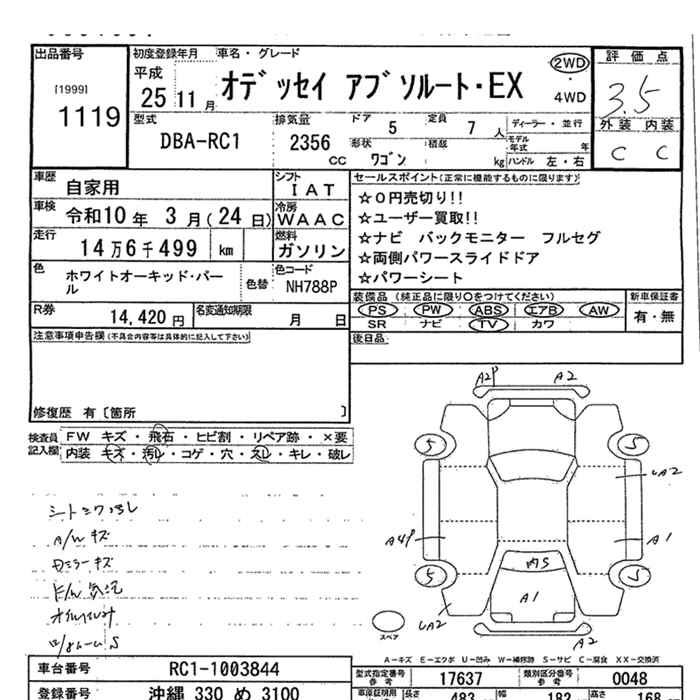 出品番号
[1999]
1119
初度登録年月
平成
25 11 月
車名・グレード
オデッセイ アブソルート・EX
2WD
4WD
評価点
3.5
外装 内装
C C
型式
DBA-RC1
排気量
2356
cc
ドア
5
定員
7
人
形状
ワゴン
積載
kg
ディーラー・並行
モデル年式
年
ハンドル 左・右
車歴
自家用
シフト
IAT
車検
令和10 年 3 月 (24 日)
冷房
WAAC
走行
14万6千499 km
燃料
ガソリン
色
ホワイトオーキッド・パール
色替
色コード
NH788P
R券
14,420 円
名変通知期限
月 日
セールスポイント(正常に機能するものに限ります)
☆0円売切り!!
☆ユーザー買取!!
☆ナビ バックモニター フルセグ
☆両側パワースライドドア
☆パワーシート
装備品(純正品に限り○をつけてください)
PS PW ABS エアB AW
SR ナビ TV カワ
新車保証書
有・無
後日品
注意事項申告欄(不具合内容等は具体的に記入して下さい)
修復歴 有〔箇所 〕
検査員記入欄
FW キズ・飛石・ヒビ割・リペア跡・×要
内装 キズ・汚レ・コゲ・穴・スレ・キレ・破レ
A/W キズ
A2P
A2
5
5
A2
A4P
A1
5
5
内S
A1
A2
スペア
A2
A-キズ E-エクボ U-凹み W-補修跡 S-サビ C-腐食 XX-交換済
車台番号
RC1-1003844
登録番号
沖縄 330 め 3100
型式指定番号
参考
17637
類別区分番号
参考
0048
車庫証明用
長さ
483
幅
182
高さ
168